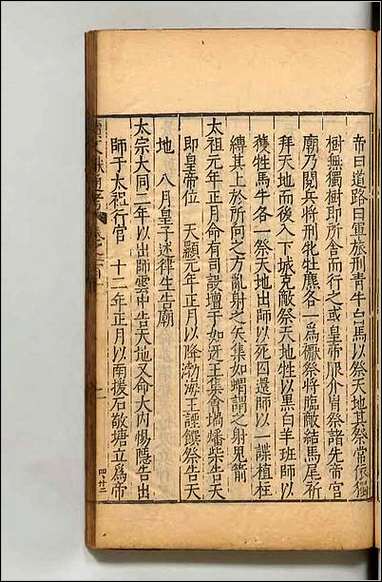 帝曰道路曰軍旅刑青牛白馬以祭天地其祭常依獨
樹無獨樹即所舍而行之或皇帝服介冑祭諸先帝宮
廟乃閱兵將行牝牡麃各一為禡祭將臨敵結馬尾祈
拜天地而後入下城克敵祭天地牲以黑白羊班師以
獲牲馬牛各一祭天地出師以死囚還師以一諜植柱
縛其上於所向之方亂射之矢集如蝟謂之射鬼箭
太祖元年正月命有司設壇于如迂王集會堝燔柴告天
即皇帝位 天顯元年正月以降勃海王諲譔祭告天
地 八月皇子述律生告廟
太宗大同二年以出師雲中告天地又命大内惕隱告出
師于太祖行宮 十二年正月以南援石敬塘立爲帝
續文獻通考
二
四廿二